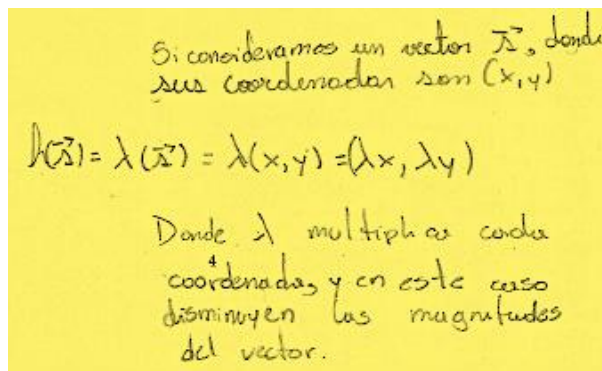 Si consideramos un vector s⃗, donde
sus coordenadas son (x,y)
h(s⃗) = λ(s⃗) = λ(x,y) = (λx, λy)
Donde λ multiplica cada
4
coordenada, y en este caso
disminuyen las magnitudes
del vector.